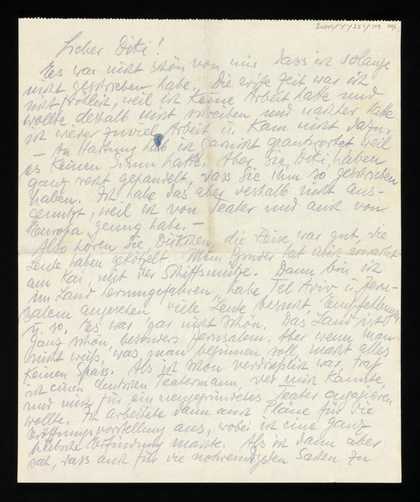 Lieber Diki!
Es war nicht schön von mir dass ich so lange
nicht geschrieben habe. Die erste Zeit war ich
nicht weil ich keine Arbeit hatte und
wollte deshalb nicht schreiben und nachher hatte
ich wieder zuviel Arbeit u. kam nicht dazu.
- An Hartung hab ich garnicht geantwortet weil
es keinen Sinn hatte. Aber Sie Diki, haben
ganz recht gehandelt, dass Sie ihm so geschrieben
haben. Ich habe das aber deshalb nicht aus-
genutzt, weil ich von Teater und auch von
Europa genug habe. -
Also hören Sie, die Reise war gut, die
Leute haben gekotzt. Mein Bruder hat mich erwartet
am Kai, mit der Schiffsmütze. Dann bin ich
im Land herumgefahren, habe Tel Aviv u. Jeru-
salem angesehen viele Leute besucht Empfehlungen
u. so. Es war gar nicht schön. Das Land ist
ganz schön, besonders Jerusalem. Aber wenn man
nicht weiß, was man beginnen soll macht alles
keinen Spass. Als ich schon verzweifelt war traf
ich einen deutschen Teatermann, der mich kannte,
und mich für ein neugegründetes Teater engagieren
wollte. Ich arbeitete dann auch Pläne für die
Eröffnungsvorstellung aus, wobei ich eine ganz
hübsche Erfindung machte. Als ich dann aber
sah, dass auch für die notwendigsten Sachen zu